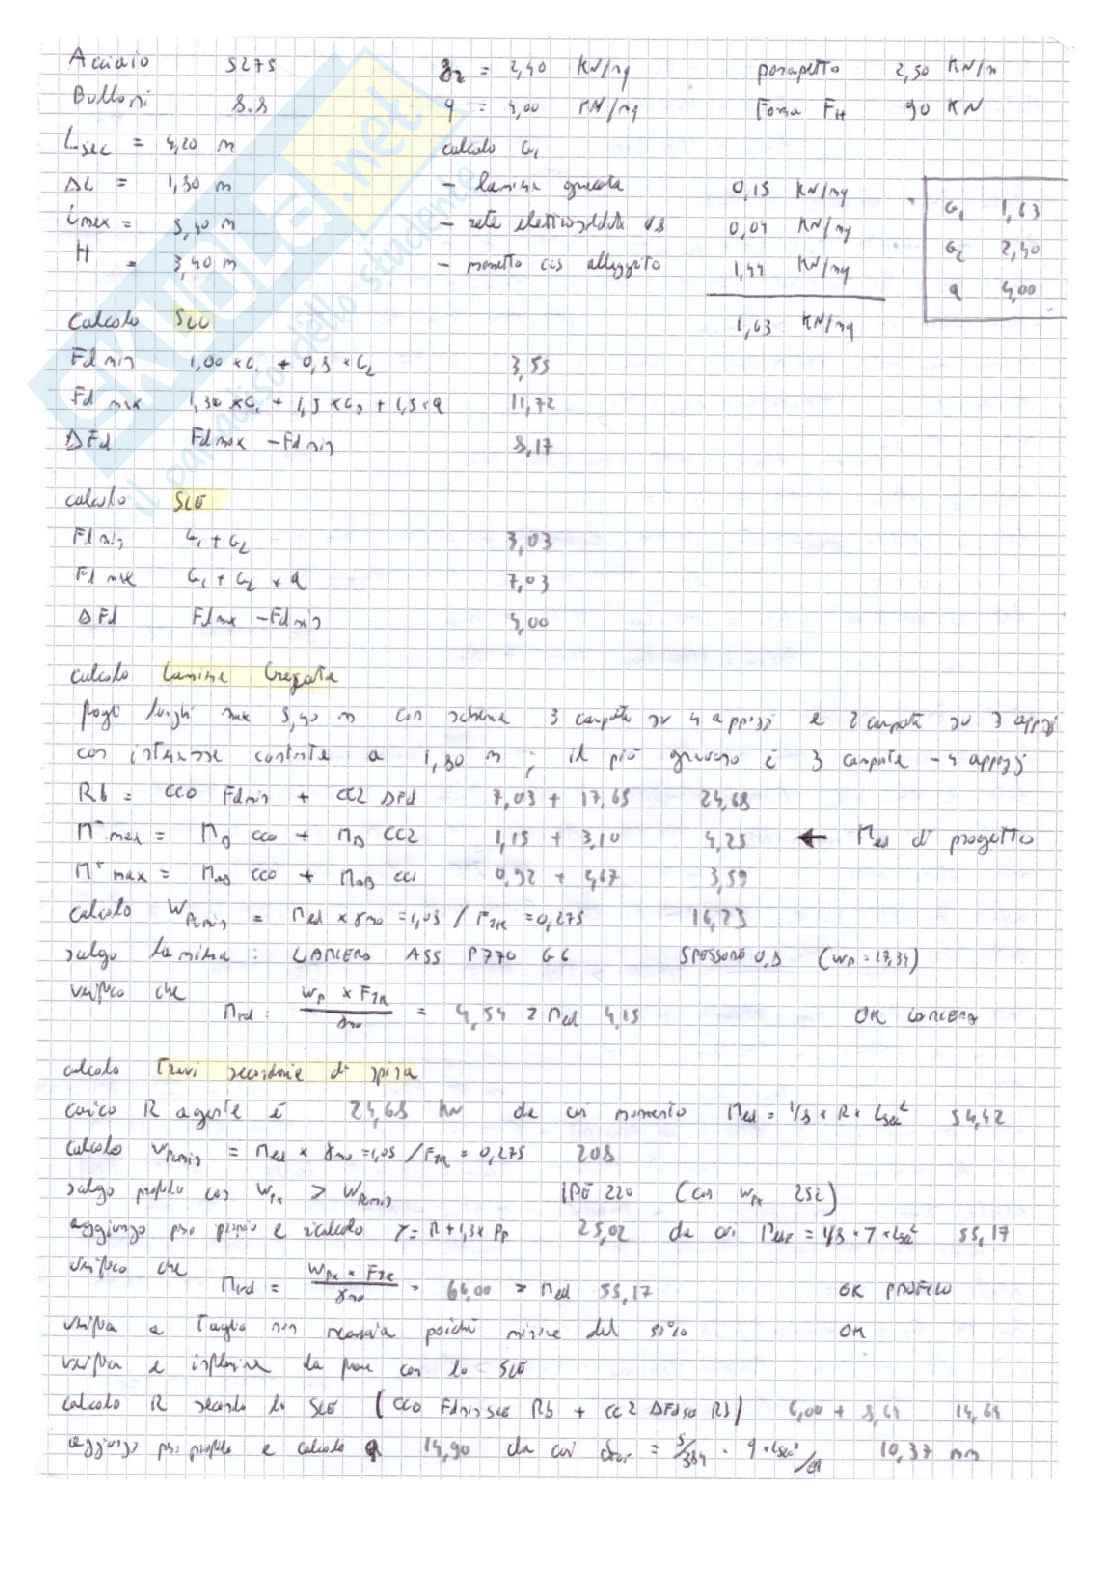 Acciaio S275 g2 = 2,40 KN/mq parapetto 2,50 KN/m
Bulloni 8.8 q = 4,00 KN/mq Forza FH 90 KN
Lsec = 4,20 m calcolo G1
ΔL = 1,80 m - lamiera grecata 0,15 KN/mq G1 1,63
Lmax = 5,40 m - rete elettrosaldata 0,04 KN/mq G2 2,40
H = 3,40 m - massetto cls alleggerito 1,44 KN/mq q 4,00
1,63 KN/mq
calcolo SLU
Fd min 1,00 × G1 + 0,8 × G2 3,55
Fd max 1,30 × G1 + 1,5 × G2 + 1,5 × q 11,72
ΔFd Fd max - Fd min 8,17
calcolo SLE
Fd min G1 + G2 3,03
Fd max G1 + G2 + q 7,03
ΔFd Fd max - Fd min 4,00
calcolo Lamiera Grecata
fogli lunghi max 5,40 m con schema 3 campate su 4 appoggi e 2 campate su 3 appoggi
con interasse costante a 1,80 m ; il più gravoso è 3 campate - 4 appoggi
Rb = CC0 Fdmin + CC2 ΔFd 7,03 + 17,65 24,68
M- max = MB CC0 + MB CC2 1,15 + 3,10 4,25 ← Med di progetto
M+ max = MAB CC0 + MAB CC1 0,92 + 2,67 3,59
calcolo Wpmin = Med × γm0 = 1,05 / Fyk = 0,275 16,23
scelgo lamiera : LAMIERA ASS P770 G6 SPESSORE 0,8 (Wp = 17,34)
verifico che Mrd = Wp × Fyk / γm0 = 4,54 ≥ Med 4,25 OK LAMIERA
calcolo Travi secondarie di spina
carico R agente è 24,68 kN da cui momento Med = 1/8 × R × Lsec² 54,42
calcolo Wpmin = Med × γm0 = 1,05 / Fyk = 0,275 208
scelgo profilo con Wpx > Wpmin IPE 220 (con Wpx 252)
aggiungo peso proprio e ricalcolo T = R + 1,3 × Pp 25,02 da cui Med = 1/8 · T · Lsec² 55,17
verifico che Mrd = Wpx × Fyk / γm0 = 66,00 > Med 55,17 OK PROFILO
verifica a Taglio non necessaria poiché minore del 50% OK
verifica a inflessione la faccio con lo SLE
calcolo R secondo lo SLE (CC0 Fdmin SLE Rb + CC2 ΔFd SLE Rb) 6,00 + 8,64 14,64
aggiungo peso profilo e calcolo q 14,90 da cui = 5/384 · q · Lsec⁴/EI 10,37 mm
SKUOLA.net
il paradiso dello studente